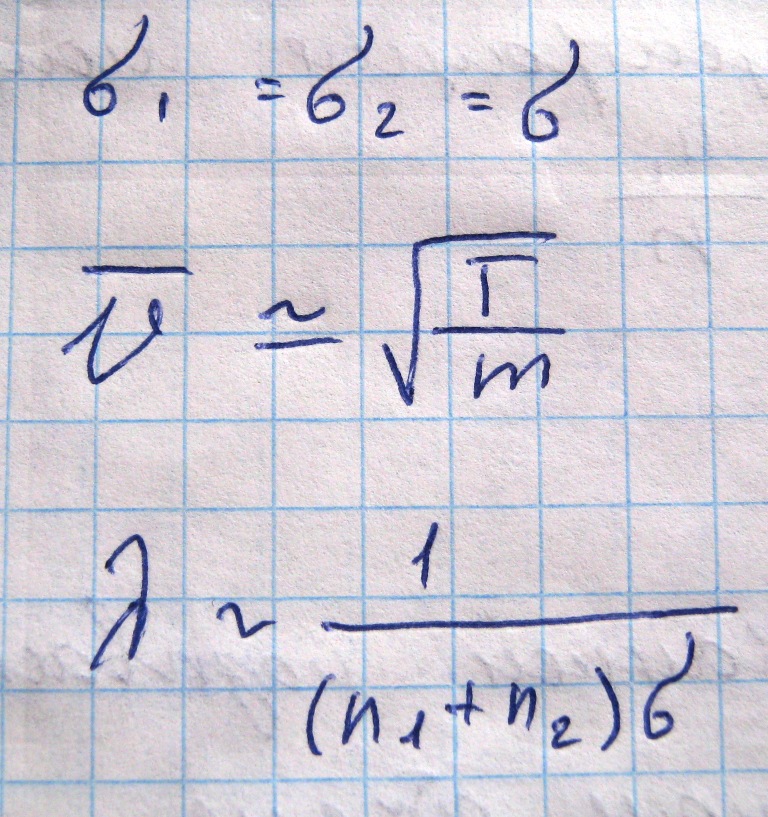 σ₁ = σ₂ = σ
v̅ ≃ √(T/m)
λ ~ 1/((n₁+n₂)σ)